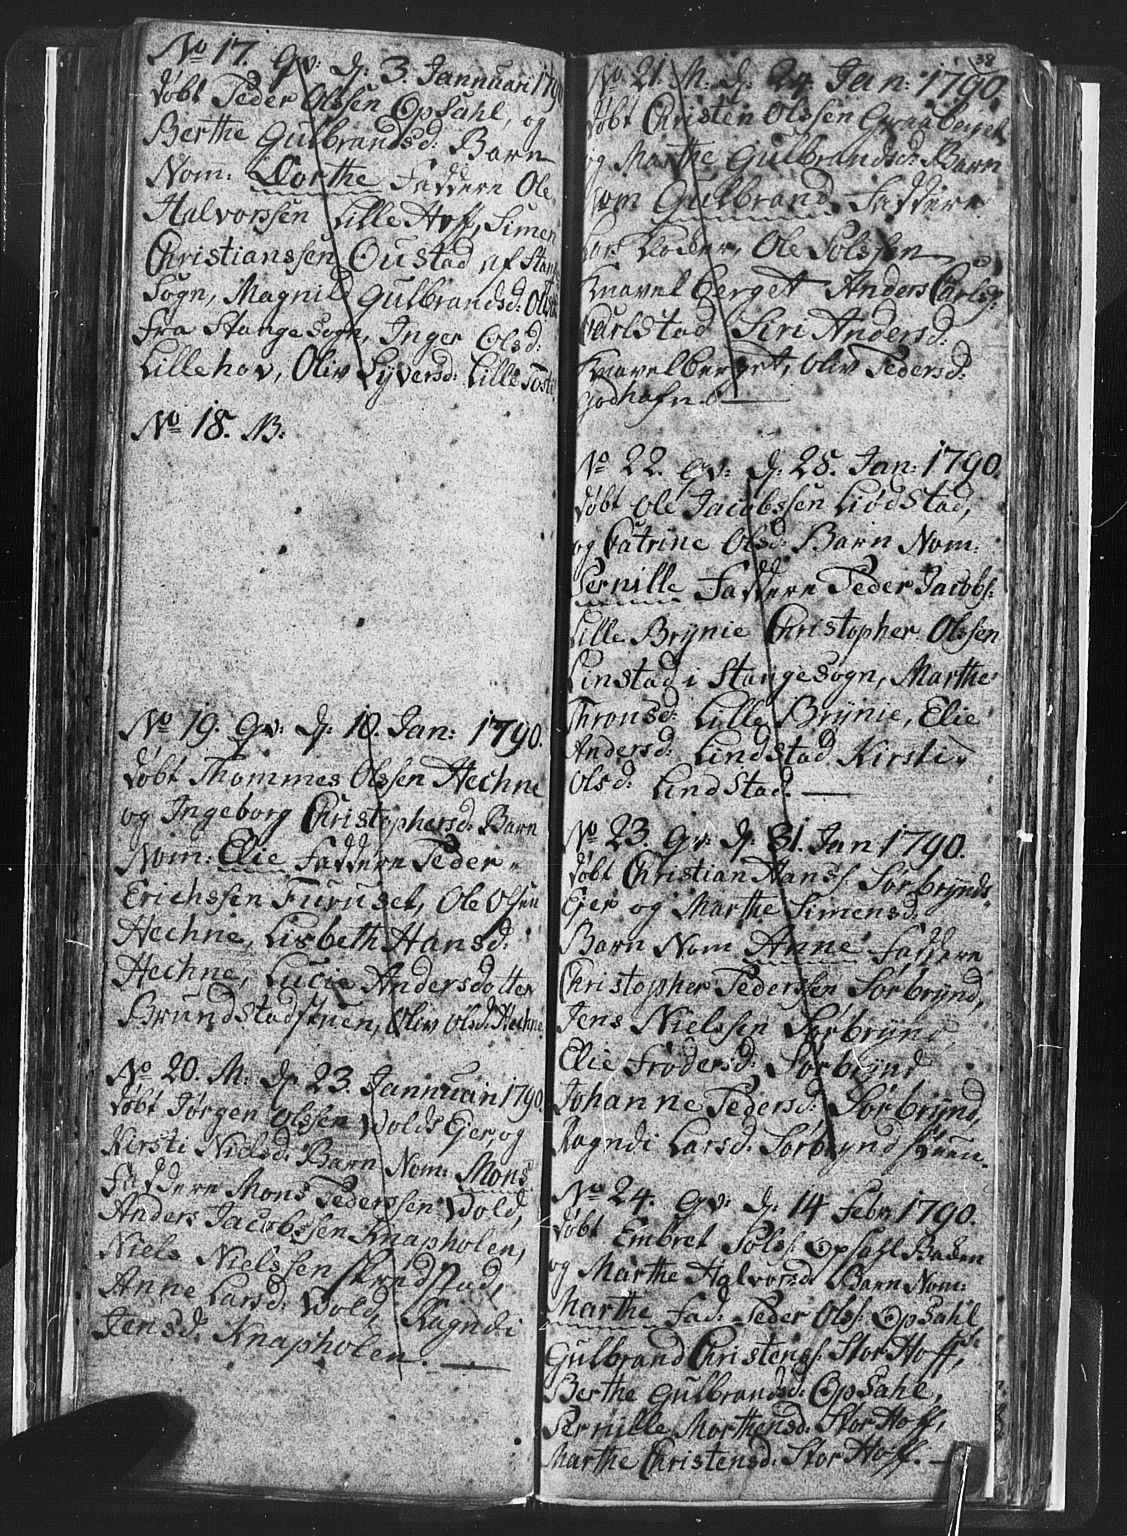 No 17. Qv: D: 3. Jannuari 1790
døbt Peder Olssen Opsahl, og
Berthe Gulbrandsd: Barn
Nom: Dorthe Faddere Ole
Halvorssen Lille Hoff, Simen
Christianssen Oustad af Stange
Sogn, Magnild Gulbrandsd:
fra Stange Sogn, Inger Olsd:
Lillehov, Oliv Syversd: Lille
No 18. NB.
No 19. Qv: D: 10. Jan: 1790.
døbt Thommes Olssen Hechne
og Ingeborg Christophersd: Barn
Nom: Elie Faddere Peder
Erichssen Furuset, Ole Olssen
Hechne, Lisbeth Hansd:
Hechne, Lucie Andersdotter
Brundstadstuen, Oliv Olsd: Hechne
No 20. M: D: 23. Jannuari 1790.
døbt Jørgen Olssen Volds Ejer, og
Kirsti Nielsd: Barn Nom: Mons
Faddere Mons Pederssen Vold,
Anders Jacobssen Knapholen,
Niels Nielssen
Anne Larsd: Vold, Ragndi
Jensd: Knapholen.
38
No 21. M: D: 24. Jan: 1790
døbt Christen Olssen
og Marthe Gulbrandsd: Barn
Nom Gulbrand Faddere
Ole Solssen
Knavelberget Anders Carls:
Carlstad Siri Andersd:
Knavelberget, Oliv Pedersd:
No 22. Qv: D: 25. Jan: 1790.
døbt Ole Jacobssen Liødstad,
og Catrine Olsd: Barn Nom:
Pernille Faddere Peder Jacobs:
Lille Brynie Christopher Olssen
Linstad i Stange Sogn, Marthe
Thronsd: Lille Brynie, Elie
Andersd: Lindstad Kirsti
Olsd: Lindstad.
No 23. Qv: D: 31. Jan 1790.
døbt Christian Hanss: Sørbrynds
Ejer og Marthe Simensd:
Barn Nom Anne Faddere
Christopher Pederssen Sørbrynd,
Jens Nielssen Sørbrynd,
Elie Frodersd: Sørbrynd
Johanne Pedersd: Sørbrynd,
Ragndi Larsd: Sørbrynd
No 24. Qv: D: 14 Febr: 1790.
døbt Embret Polss: Opsahl Bakken
og Marthe Halvorsd: Barn Nom:
Marthe Fad: Peder Olss: Opsahl,
Gulbrand Christenss: Stor Hoff,
Berthe Gulbrandsd: Opsahl,
Pernille Morthensd: Stor Hoff,
Marthe Christensd: Stor Hoff.